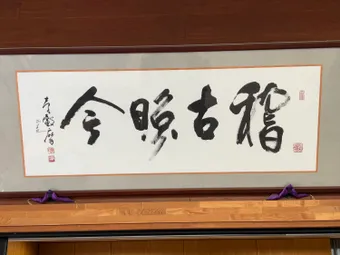 稽古照今